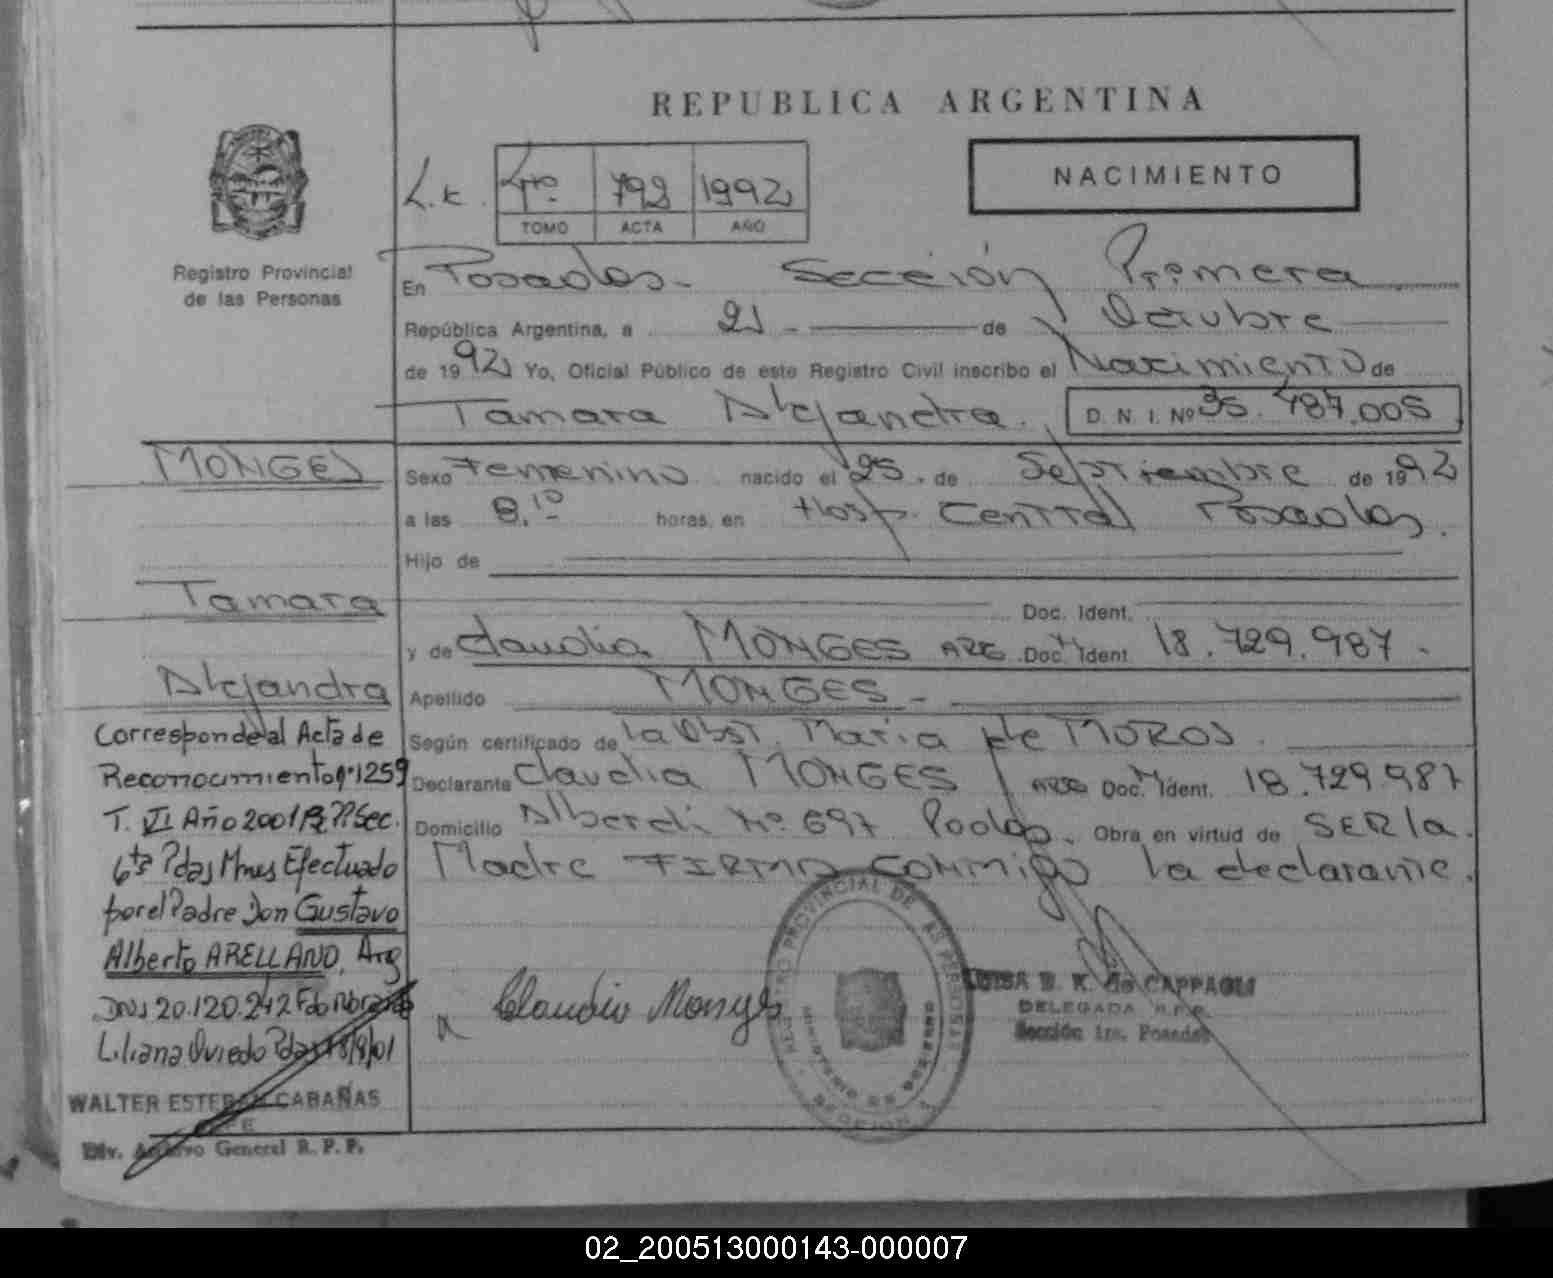 REPUBLICA ARGENTINA
NACIMIENTO
L.E. 4to. 792 1992
TOMO ACTA AÑO
Registro Provincial
de las Personas
En Posadas - Sección Primera
República Argentina, a 21 - de Octubre
de 1992 Yo, Oficial Público de este Registro Civil inscribo el Nacimiento de
Tamara Alejandra. D. N. I. Nº 36.787.005
MONGES
Tamara
Alejandra
Sexo Femenino nacido el 25 . de Septiembre de 1992
a las 8.10 horas, en Hosp. Central Posadas.
Hijo de
Doc. Ident.
y de Claudia MONGES ARG Doc. Ident. 18.729.987 -
Apellido MONGES -
Según certificado de la Obst. Maria de MOROS.
Declarante Claudia MONGES ARG Doc. Ident. 18.729.987
Domicilio Alberdi Nº 697 Pdas. Obra en virtud de SER la
Madre FIRMA CONMigo la declarante.
Corresponde al Acta de
Reconocimiento Nº 1259
T. VI Año 2001 Sec.
6ta Pdas Mnes Efectuado
por el Padre Don Gustavo
Alberto ARELLANO, Arg
DNI 20.120.242 Fdo
Liliana Oviedo Pdas 8/01
WALTER ESTEBAN CABAÑAS
Div. Archivo General R. P. P.
Claudia Monges
REGISTRO PROVINCIAL DE LAS PERSONAS
LUISA B. K. de CAPPAGLI
DELEGADA R.P.P.
Sección 1ra. Posadas
02_200513000143-000007